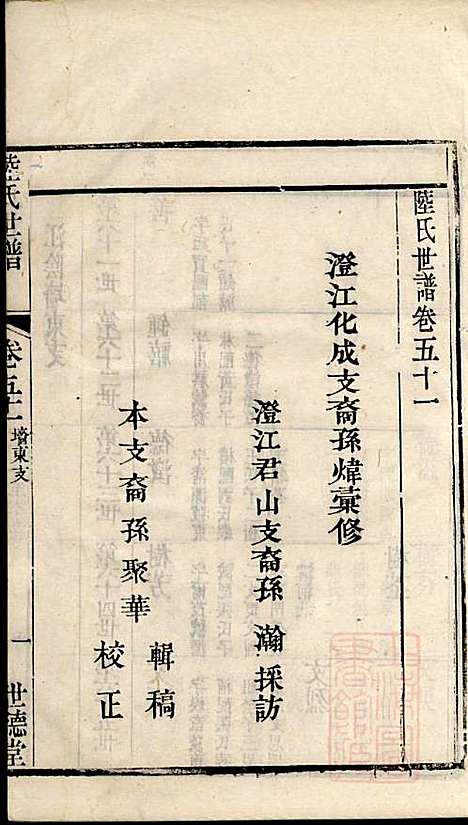 陸氏世譜卷五十一
澄江化成支裔孫煒彙修
澄江君山支裔孫瀚採訪
本支裔孫聚華
輯稿
校正
陸氏世譜
卷五十一
墳東支
一
世德堂